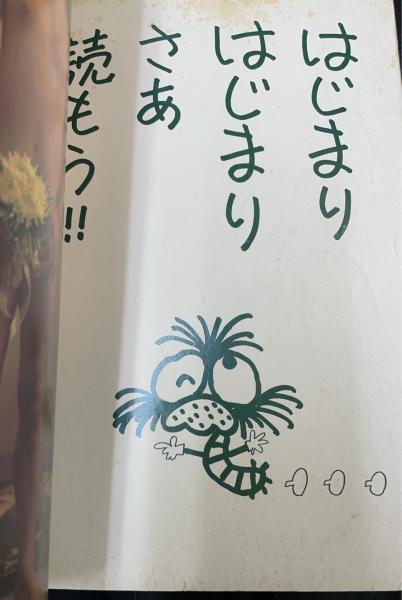 はじまり
はじまり
さあ
読もう!!